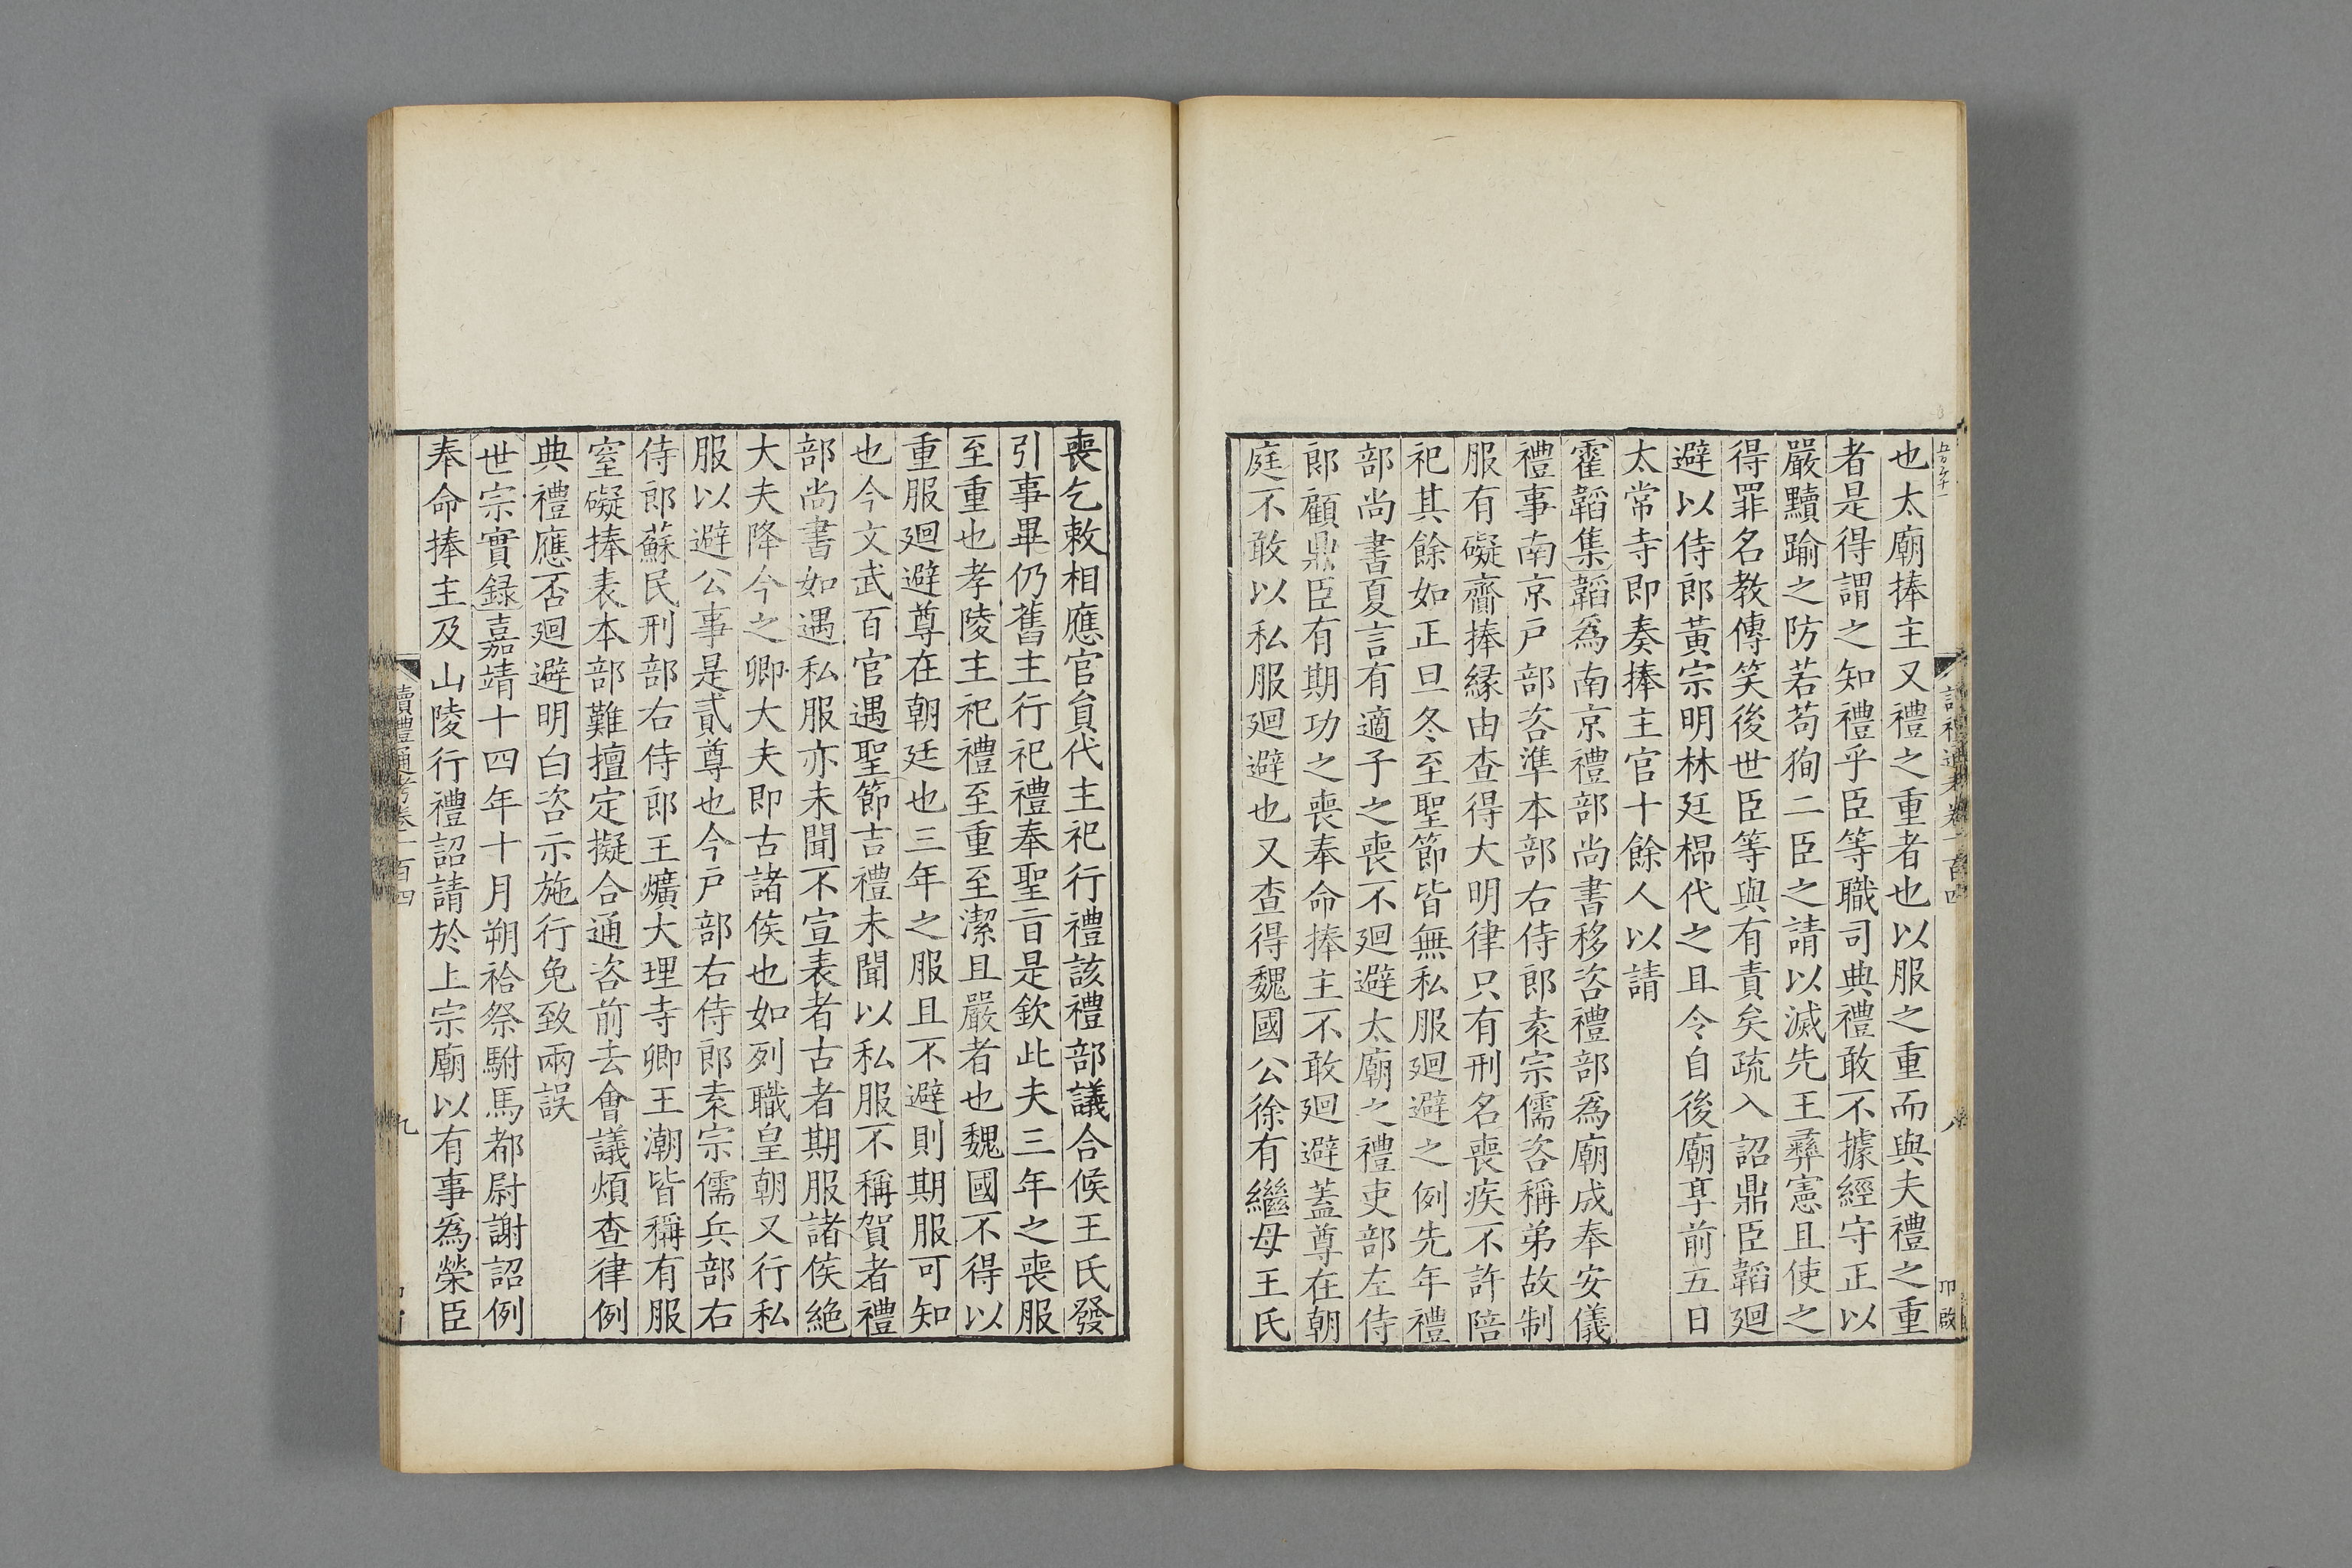 也太廟捧主又禮之重者也以服之重而與夫禮之重
者是得謂之知禮乎臣等職司典禮敢不據經守正以
嚴黷踰之防若茍狥二臣之請以滅先王彞憲且使之
得罪名教傳笑後世臣等與有責矣疏入詔鼎臣韜廻
避以侍郎黃宗明林廷㭿代之且令自後廟享前五日
太常寺即奏捧主官十餘人以請
霍韜集韜為南京禮部尚書移咨禮部為廟成奉安儀
禮事南京戶部咨準本部右侍郎袁宗儒咨稱弟故制
服有礙齋捧緣由查得大明律只有刑名喪疾不許陪
祀其餘如正旦冬至聖節皆無私服廻避之例先年禮
部尚書夏言有適子之喪不廻避太廟之禮吏部左侍
郎顧鼎臣有期功之喪奉命捧主不敢廻避蓋尊在朝
庭不敢以私服廻避也又查得魏國公徐有繼母王氏
喪乞敕相應官員代主祀行禮該禮部議合候王氏發
引事畢仍舊主行祀禮奉聖旨是欽此夫三年之喪服
至重也孝陵主祀禮至重至潔且嚴者也魏國不得以
重服廻避尊在朝廷也三年之服且不避則期服可知
也今文武百官遇聖節吉禮未聞以私服不稱賀者禮
部尚書如遇私服亦未聞不宣表者古者期服諸侯絶
大夫降今之卿大夫即古諸侯也如列職皇朝又行私
服以避公事是貳尊也今戶部右侍郎袁宗儒兵部右
侍郎蘇民刑部右侍郎王爌大理寺卿王潮皆稱有服
窒礙捧表本部難擅定擬合通咨前去會議煩查律例
典禮應否廻避明白咨示施行免致兩誤
世宗實録嘉靖十四年十月朔祫祭駙馬都尉謝詔例
奉命捧主及山陵行禮詔請於上宗廟以有事為榮臣
讀禮通考卷一百四
九